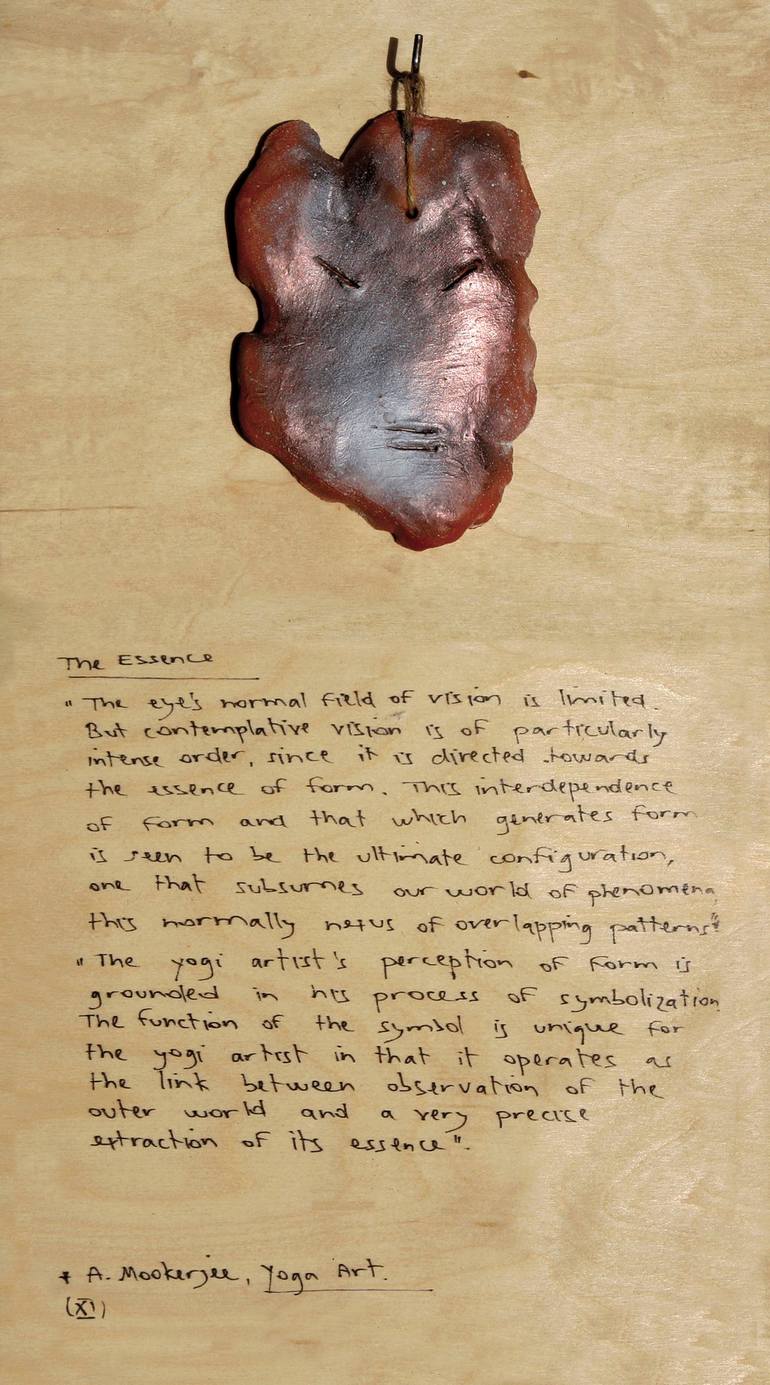 The Essence
" The eye's normal field of vision is limited.
But contemplative vision is of particularly
intense order, since it is directed towards
the essence of form. This interdependence
of form and that which generates form
is seen to be the ultimate configuration,
one that subsumes our world of phenomena,
this normally nexus of overlapping patterns".
" The yogi artist's perception of form is
grounded in his process of symbolization
The function of the symbol is unique for
the yogi artist in that it operates as
the link between observation of the
outer world and a very precise
extraction of its essence".
* A. Mookerjee, Yoga Art.
(XI)